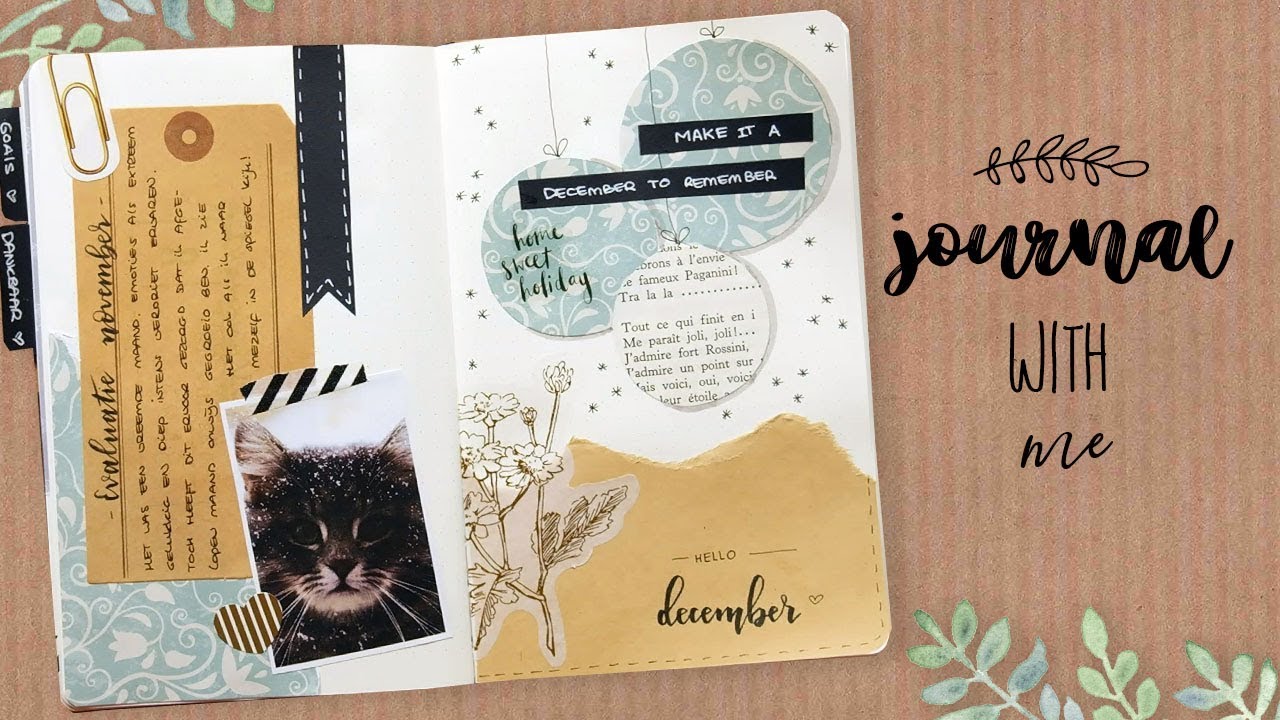 GOALS ♡
DANKBAAR ♡
- evaluatie november -
HET WAS EEN VREEMDE MAAND. EMOTIES ALS EXTREEM
GELUKKIG EN DIEP INTENS VERDRIET ERVAREN.
TOCH HEEFT DIT ERVOOR GEZORGD DAT IK AFGE-
LOPEN MAAND ONWIJS GEGROEID BEN. IK ZIE
HET OOK ALS IK NAAR
MEZELF IN DE SPIEGEL KIJK!
MAKE IT A
DECEMBER TO REMEMBER
home
sweet
holiday
brons à l'envie
fameux Paganini!
Tra la la ............
Tout ce qui finit en i
Me paraît joli, joli!...
J'admire fort Rossini,
J'admire un point sur
Mais voici, oui, voici
leur étoile a
— HELLO —
december ♡
journal
WITH
me